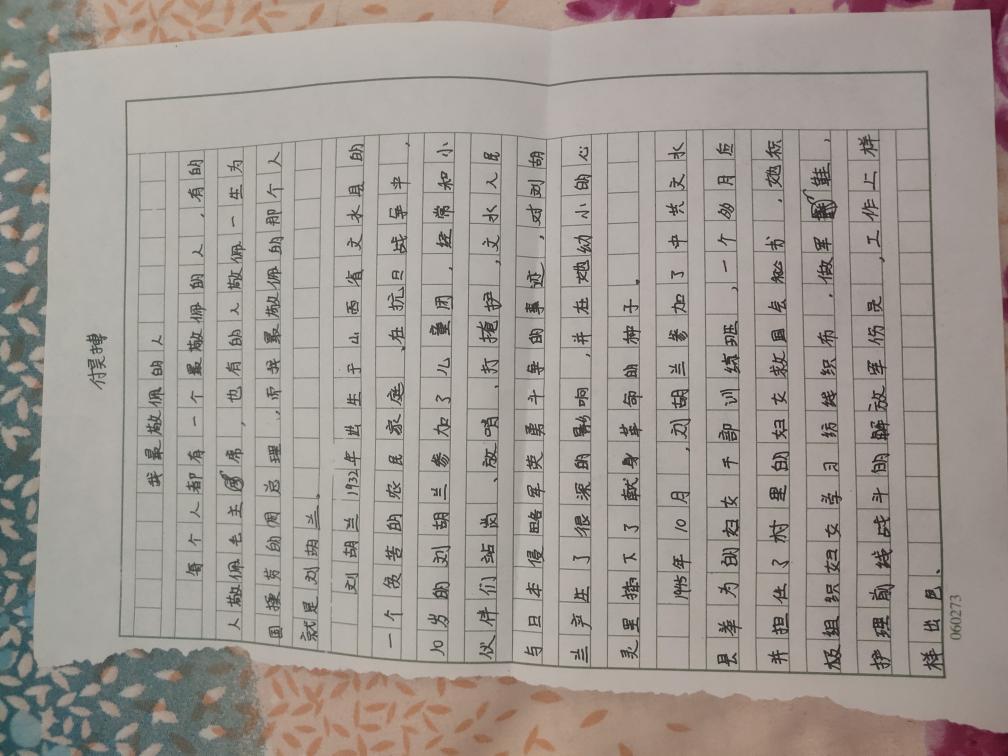 付昊搏
我最敬佩的人
每个人都有一个最敬佩的人，有的
人敬佩毛主席，也有的人敬佩一生为
国操劳的周总理，而我最敬佩的那个人
就是刘胡兰。
刘胡兰1932年出生于山西省文水县的
一个贫苦的农民家庭，在抗日战争中，
10岁的刘胡兰参加了儿童团，经常和小
伙伴们站岗、放哨、打掩护，文水人民
与日本侵略军英勇斗争的事迹，对刘胡
兰产生了很深的影响，并在她幼小的心
灵里插下了献身革命的种子。
1945年10月，刘胡兰参加了中共文水
县举为的妇女干部训练班，一个多月后
并担任了村里的妇女救国会秘书，她积
极组织妇女学习纺线织布，做军鞋，
护理前线战斗的解放军伤员，工作上样
样出色、
060273